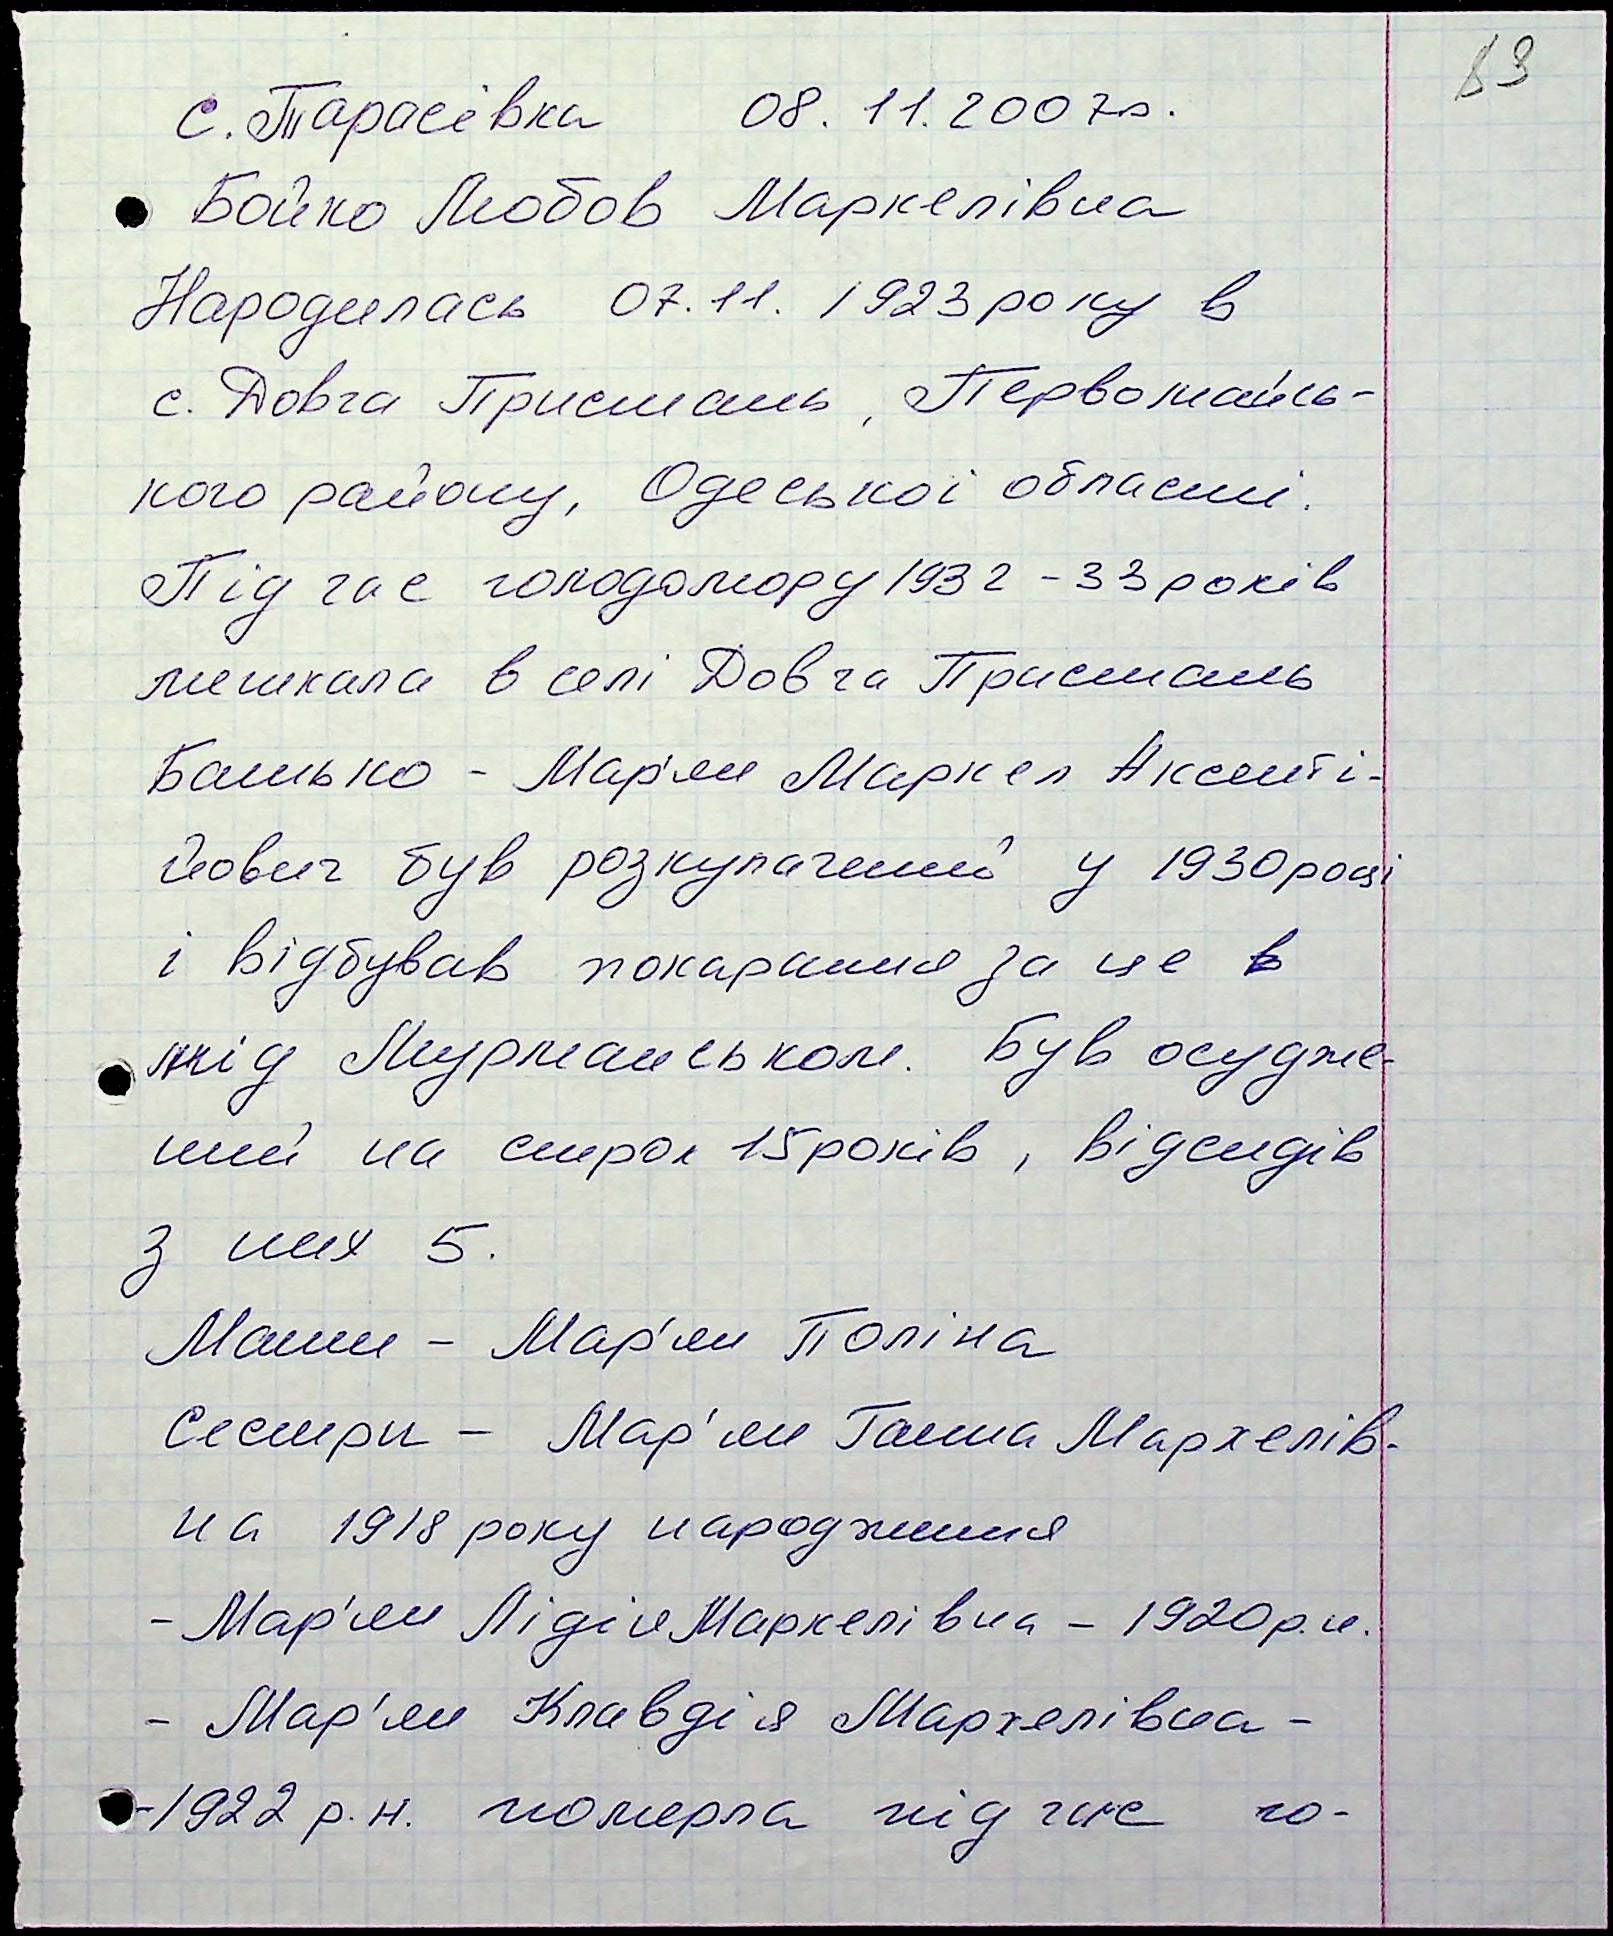 83
с. Тарасівка 08.11.2007р.
Бойко Любов Маркелівна
Народилась 07.11.1923року в
с. Довга Пристань, Первомайсь-
кого району, Одеської області.
Під час голодомору 1932-33років
мешкала в селі Довга Пристань
Батько - Мар'ян Маркел Аксенті-
йович був розкулачений у 1930році
і відбував покарання за це в
під Мурманськом. Був осудже-
ний на строк 15років, відсидів
з них 5.
Мати - Мар'ян Поліна
Сестри - Мар'ян Ганна Маркелів-
на 1918року народження
- Мар'ян Лідія Маркелівна - 1920р.н.
- Мар'ян Клавдія Маркелівна -
-1922 р.н. померла під час го-